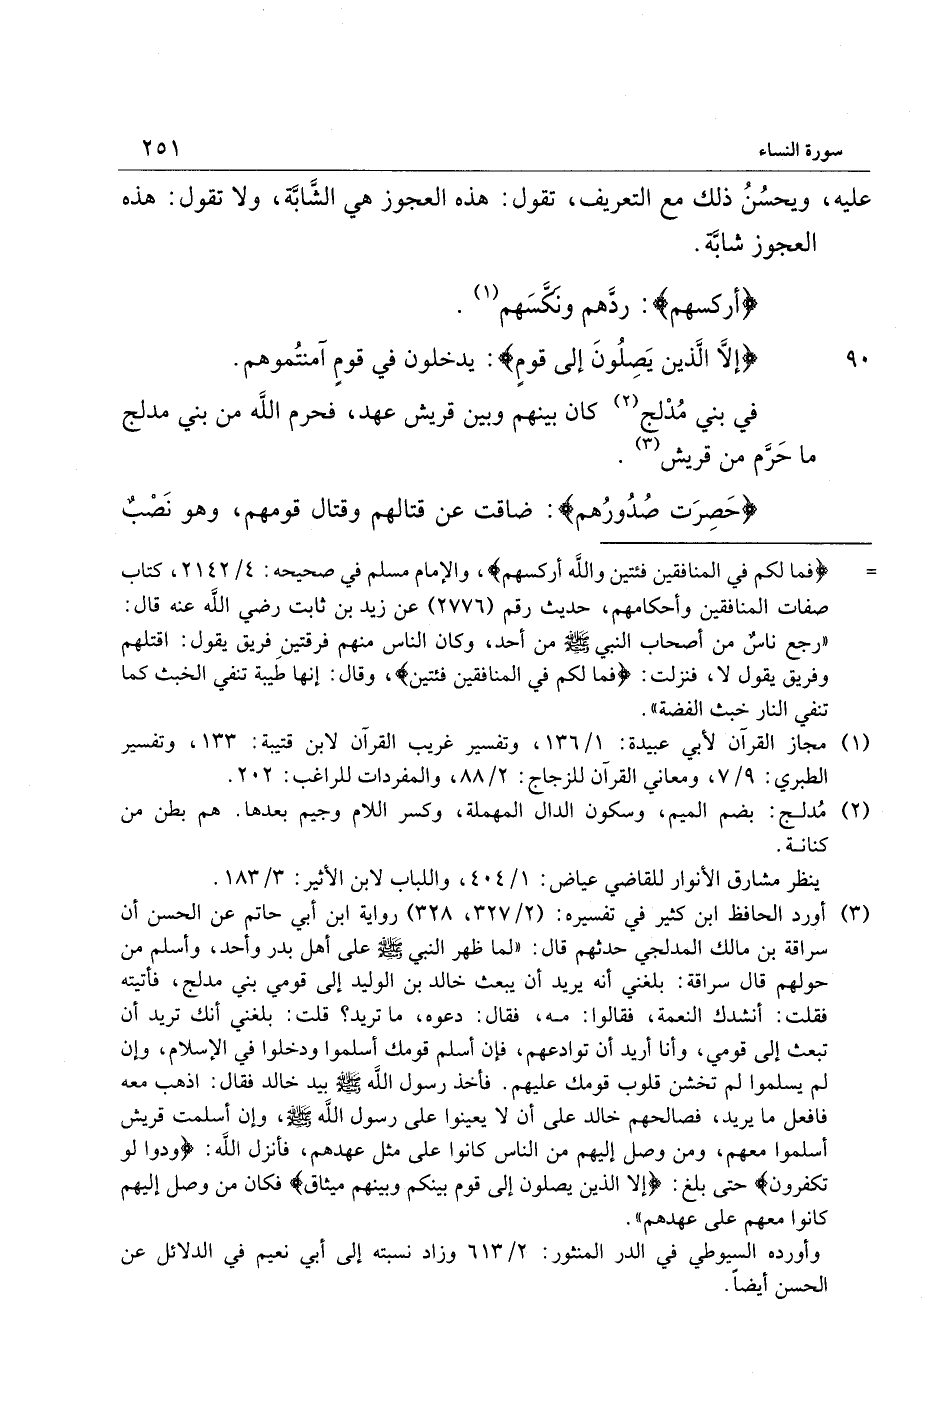 سورة النساء ٢٥١
عليه، ويحسُنُ ذلك مع التعريف، تقول: هذه العجوز هي الشَّابَّة، ولا تقول: هذه
العجوز شابَّة.
﴿أركسهم﴾: ردَّهم ونَكَّسَهم(١).
٩٠ ﴿إلاَّ الَّذين يَصِلُونَ إلى قومٍ﴾: يدخلون في قومٍ آمنتُموهم.
في بني مُدْلج(٢) كان بينهم وبين قريش عهد، فحرم اللَّه من بني مدلج
ما حَرَّم من قريش(٣).
﴿حَصِرَت صُدُورُهم﴾: ضاقت عن قتالهم وقتال قومهم، وهو نَصْبٌ
= ﴿فما لكم في المنافقين فئتين واللَّه أركسهم﴾، والإمام مسلم في صحيحه: ٢١٤٢/٤، كتاب
صفات المنافقين وأحكامهم، حديث رقم (٢٧٧٦) عن زيد بن ثابت رضي اللَّه عنه قال:
«رجع ناسٌ من أصحاب النبي ﷺ من أحد، وكان الناس منهم فرقتينِ فريق يقول: اقتلهم
وفريق يقول لا، فنزلت: ﴿فما لكم في المنافقين فئتين﴾، وقال: إنها طيبة تنفي الخبث كما
تنفي النار خبث الفضة».
(١) مجاز القرآن لأبي عبيدة: ١٣٦/١، وتفسير غريب القرآن لابن قتيبة: ١٣٣، وتفسير
الطبري: ٧/٩، ومعاني القرآن للزجاج: ٨٨/٢، والمفردات للراغب: ٢٠٢.
(٢) مُدلج: بضم الميم، وسكون الدال المهملة، وكسر اللام وجيم بعدها. هم بطن من
كنانة.
ينظر مشارق الأنوار للقاضي عياض: ٤٠٤/١، واللباب لابن الأثير: ١٨٣/٣.
(٣) أورد الحافظ ابن كثير في تفسيره: (٣٢٧/٢، ٣٢٨) رواية ابن أبي حاتم عن الحسن أن
سراقة بن مالك المدلجي حدثهم قال: «لما ظهر النبي ﷺ على أهل بدر وأحد، وأسلم من
حولهم قال سراقة: بلغني أنه يريد أن يبعث خالد بن الوليد إلى قومي بني مدلج، فأتيته
فقلت: أنشدك النعمة، فقالوا: مه، فقال: دعوه، ما تريد؟ قلت: بلغني أنك تريد أن
تبعث إلى قومي، وأنا أريد أن توادعهم، فإن أسلم قومك أسلموا ودخلوا في الإسلام، وإن
لم يسلموا لم تخشن قلوب قومك عليهم. فأخذ رسول اللَّه ﷺ بيد خالد فقال: اذهب معه
فافعل ما يريد، فصالحهم خالد على أن لا يعينوا على رسول اللَّه ﷺ، وإن أسلمت قريش
أسلموا معهم، ومن وصل إليهم من الناس كانوا على مثل عهدهم، فأنزل اللَّه: ﴿ودوا لو
تكفرون﴾ حتى بلغ: ﴿إلا الذين يصلون إلى قوم بينكم وبينهم ميثاق﴾ فكان من وصل إليهم
كانوا معهم على عهدهم».
وأورده السيوطي في الدر المنثور: ٦١٣/٢ وزاد نسبته إلى أبي نعيم في الدلائل عن
الحسن أيضاً.